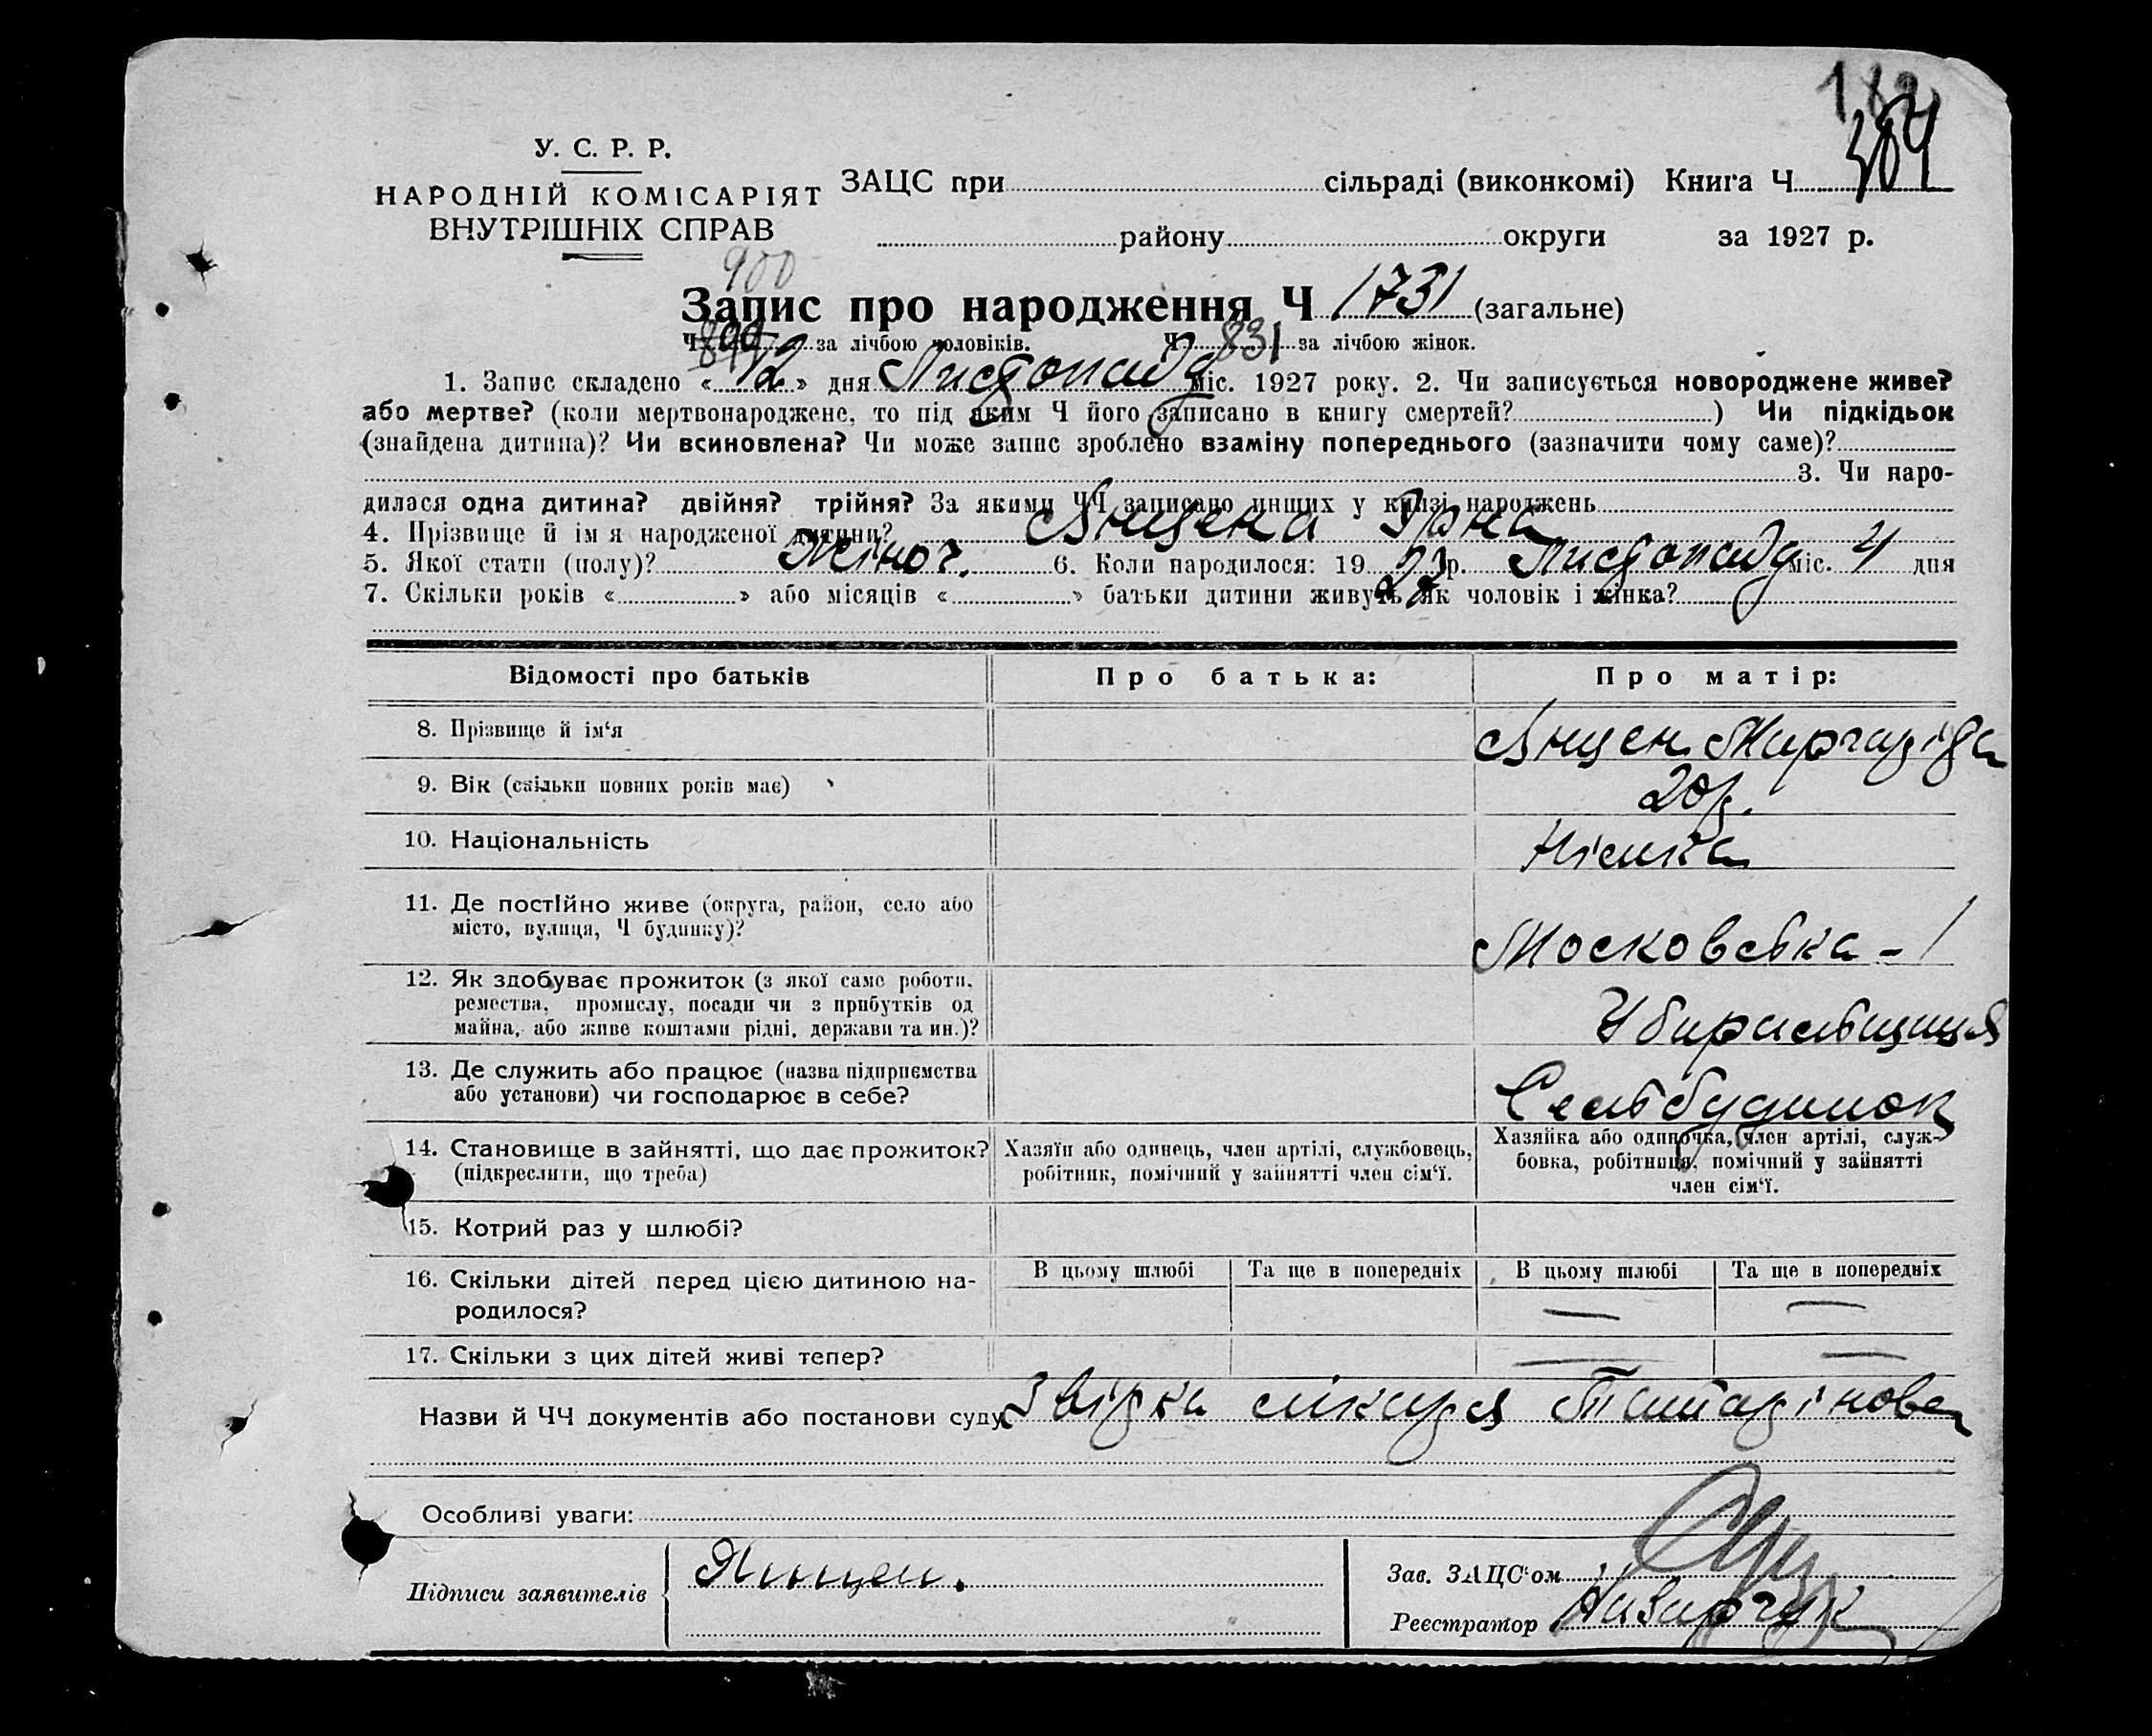 182
384
У. С. Р. Р.
НАРОДНІЙ КОМІСАРІЯТ
ВНУТРІШНІХ СПРАВ
ЗАЦС при сільраді (виконкомі) Книга Ч
району округи за 1927 р.
900
Запис про народження Ч 1731 (загальне)
Ч 899 за лічбою чоловіків. Ч 831 за лічбою жінок.
1. Запис складено « 12 » дня Листопаду міс. 1927 року. 2. Чи записується новороджене живе?
або мертве? (коли мертвонароджене, то під яким Ч його записано в книгу смертей? ) Чи підкідьок
(знайдена дитина)? Чи всиновлена? Чи може запис зроблено взаміну попереднього (зазначити чому саме)?
3. Чи наро-
дилася одна дитина? двійня? трійня? За якими ЧЧ записано инших у книзі народжень
4. Прізвище й ім я народженої дитини? Янцена Ірна
5. Якої стати (полу)? Жіноч. 6. Коли народилося: 19 27 р. Листопаду міс. 4 дня
7. Скільки років « » або місяців « » батьки дитини живуть як чоловік і жінка?
Відомості про батьків Про батька: Про матір:
8. Прізвище й ім‘я Янцен Маргаріда
9. Вік (скільки повних років має) 20 р.
10. Національність Німка
11. Де постійно живе (округа, район, село або
місто, вулиця, Ч будинку)? Московська - 1
12. Як здобуває прожиток (з якої саме роботи,
ремества, промислу, посади чи з прибутків од
майна, або живе коштами рідні, держави та ин.)? Убиральщиця
13. Де служить або працює (назва підприємства
або установи) чи господарює в себе? Сельбудинок
14. Становище в зайнятті, що дає прожиток?
(підкреслити, що треба)
Хазяїн або одинець, член артілі, службовець,
робітник, помічний у зайнятті член сім‘ї.
Хазяйка або одиночка, член артілі, служ-
бовка, робітниця, помічний у зайнятті
член сім‘ї.
15. Котрий раз у шлюбі?
16. Скільки дітей перед цією дитиною на-
родилося?
В цьому шлюбі Та ще в попередніх В цьому шлюбі Та ще в попередніх
— —
17. Скільки з цих дітей живі тепер? — —
Назви й ЧЧ документів або постанови суду Звірка лікаря
Особливі уваги:
Підписи заявителів Янцен.
Зав. ЗАЦС‘ом
Реєстратор Назарчук